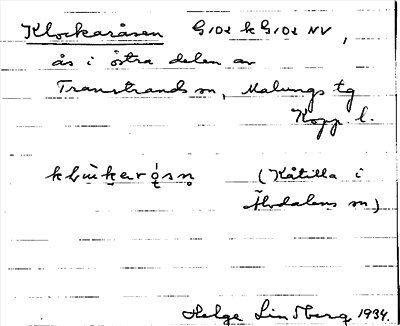 Klockaråsen G102 k G102 NV,
ås i östra delen av
Transtrands sn, Malungs tg
Kopp. l.
(Kåtilla i
Älvdalens sn)
Helge Lindberg 1934.